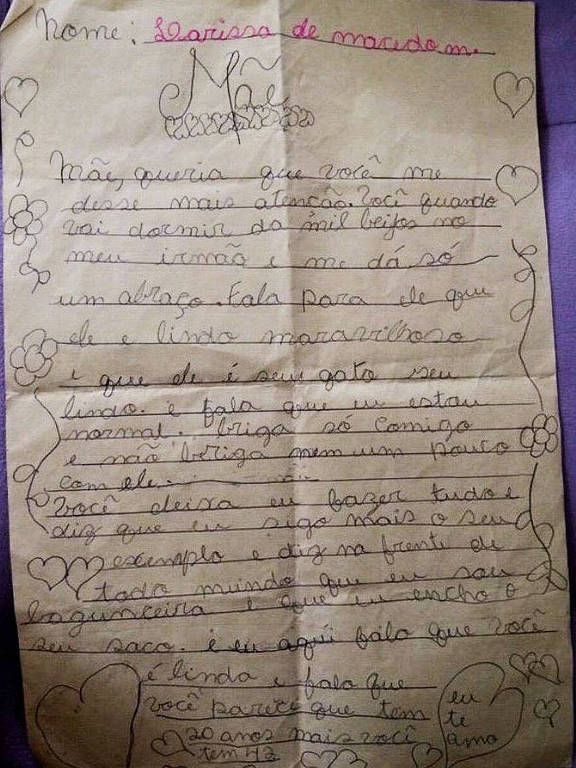 Nome: Larissa de macedo m.
Mãe
Mãe, queria que você me
desse mais atenção. Você quando
vai dormir da mil beijos no
meu irmão e me dá só
um abraço. Fala para ele que
ele e lindo maravilhoso
e que ele é seu gato seu
lindo. e fala que eu estou
normal. briga só comigo
e não briga nem um pouco
com ele.
Você deixa eu fazer tudo e
diz que eu sigo mais o seu
exemplo e diz na frente de
todo mundo que eu sou
bagunceira e que eu encho o
seu saco. e eu aqui falo que você
é linda e falo que
você parece que tem
20 anos mais você
tem 42
eu
te
amo